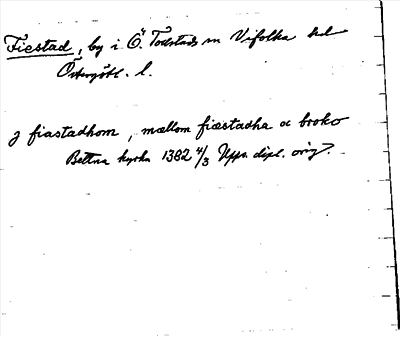 Fiestad, by i Ö. Tollstads sn Vifolka hd
Östergötl. l.
j fiastadhom, mællom fiæstadha oc broko
Bettna kyrka 1382 4/3 Upps. dipl. orig.